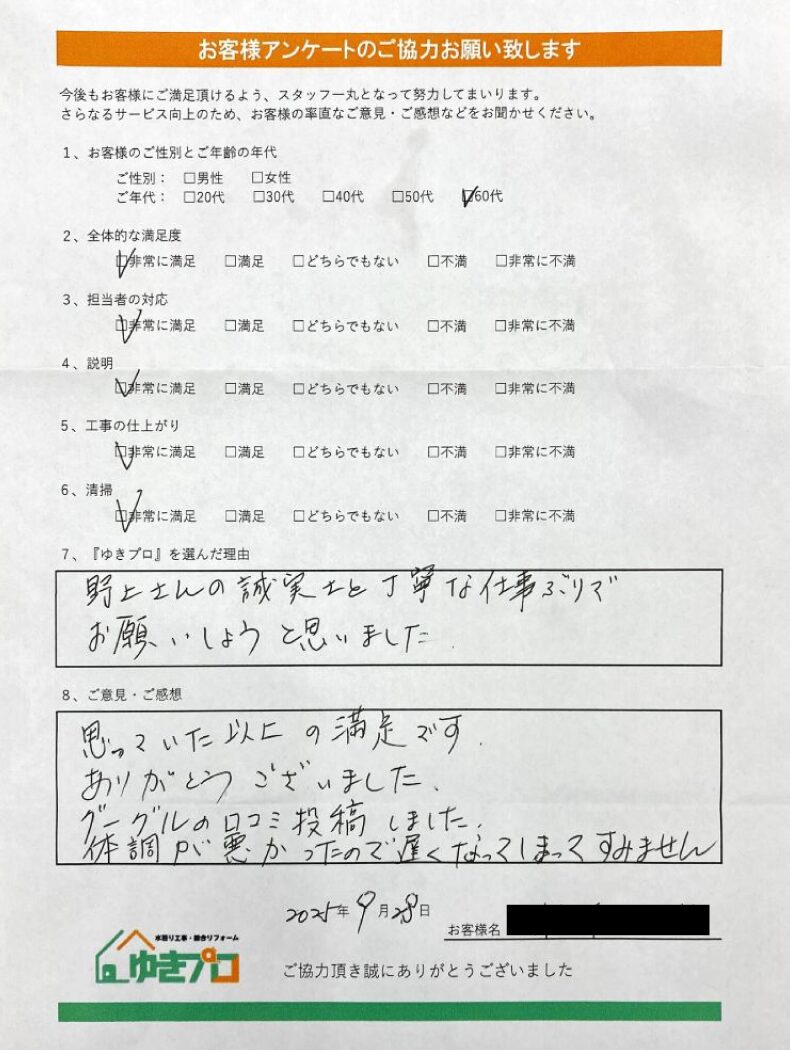 お客様アンケートのご協力お願い致します
今後もお客様にご満足頂けるよう、スタッフ一丸となって努力してまいります。
さらなるサービス向上のため、お客様の率直なご意見・ご感想などをお聞かせください。
1、お客様のご性別とご年齢の年代
ご性別： □男性 □女性
ご年代： □20代 □30代 □40代 □50代 ☑60代
2、全体的な満足度
☑非常に満足 □満足 □どちらでもない □不満 □非常に不満
3、担当者の対応
☑非常に満足 □満足 □どちらでもない □不満 □非常に不満
4、説明
☑非常に満足 □満足 □どちらでもない □不満 □非常に不満
5、工事の仕上がり
☑非常に満足 □満足 □どちらでもない □不満 □非常に不満
6、清掃
☑非常に満足 □満足 □どちらでもない □不満 □非常に不満
7、『ゆきプロ』を選んだ理由
野上さんの誠実さと丁寧な仕事ぶりで
お願いしようと思いました.
8、ご意見・ご感想
思っていた以上の満足です.
ありがとうございました.
グーグルの口コミ投稿しました.
体調が悪かったので遅くなってしまってすみません
2025年9月28日
お客様名
水廻り工事・働きリフォーム
ゆきプロ
ご協力頂き誠にありがとうございました